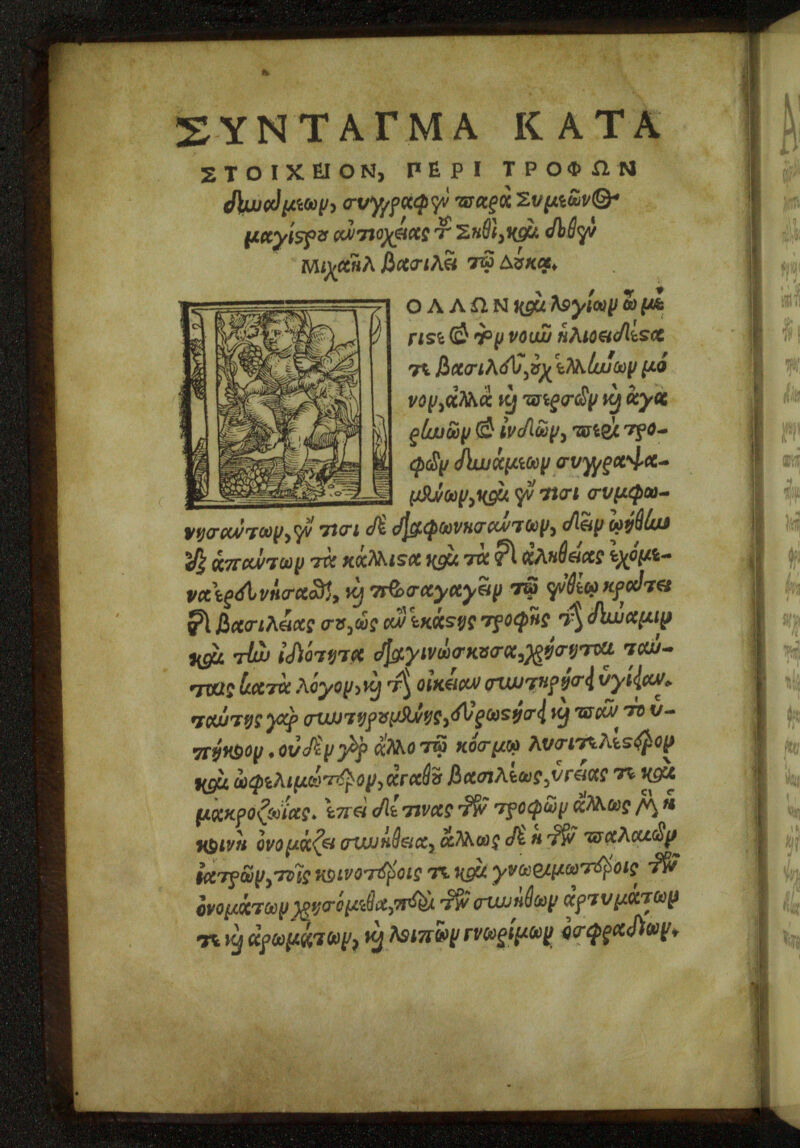 ΣΥΝΤΑΓΜΑ ΚΑΤΑ
ΣΤΟΙΧΕΙΟΝ, ΠΕΡΙ ΤΡΟΦΩΝ
δυνάμεων, συγγραφὲν παρὰ Συμεῶνος
μαγίστρου ἀντιοχείας τ Σηθὶ, καὶ δοθὲν
Μιχαὴλ βασιλεῖ τῷ Δούκα.
ΟΛΛΩΝ καὶ λογίων ὦ μέ
γιστε καὶ τὸν νοῦν ἡλιοειδέστα
τε βασιλεῦ, οὐχ ἑλλήνων μό
νον, ἀλλὰ καὶ περσῶν καὶ ἀγα
ρηνῶν καὶ ἰνδῶν, περὶ τρο-
φῶν δυνάμεων συγγραψα-
μένων, καὶ ἔν τισι συμφω-
νησάντων, ἔν τισι δὲ διαφωνησάντων, δεῖν ᾠήθην
ἐξ ἁπάντων τὰ κάλλιστα καὶ τὰ τῆς ἀληθείας ἐχόμε-
να ἐρδυνήσασθαι, καὶ προσαγαγεῖν τῷ ἐνθέῳ κράτει
τῆς βασιλείας σου, ὡς ἂν ἑκάστης τροφῆς τὴν δύναμιν
καὶ τὴν ἰδιότητα διαγινώσκουσα, χρήσηται ταύ-
ταις κατὰ λόγον, καὶ τὴν οἰκείαν συντηρήσῃ ὑγίειαν.
ταύτης γὰρ συντηρουμένης, εὐρωστήσῃ καὶ πᾶν τὸ ὑ-
πήκοον. οὐδὲν γὰρ ἄλλο τῷ κόσμῳ λυσιτελέστερον
καὶ ὠφελιμώτερον, ἀγαθοῦ βασιλέως, ὑγείας τε καὶ
μακροζωίας. ἐπεὶ δέ τινας τῶν τροφῶν ἄλλως μὲν ἡ
κοινὴ ὀνομάζει συνήθεια, ἄλλως δὲ ἡ τῶν παλαιῶν
ἰατρῶν, τοῖς κοινοτέροις τε καὶ γνωριμωτέροις τῶν
ὀνομάτων χρησόμεθα, περὶ τῶν συνήθων ἀρτυμάτων
τε καὶ ἀρωμάτων, καὶ λοιπῶν γνωρίμων ὀσφραδίων.